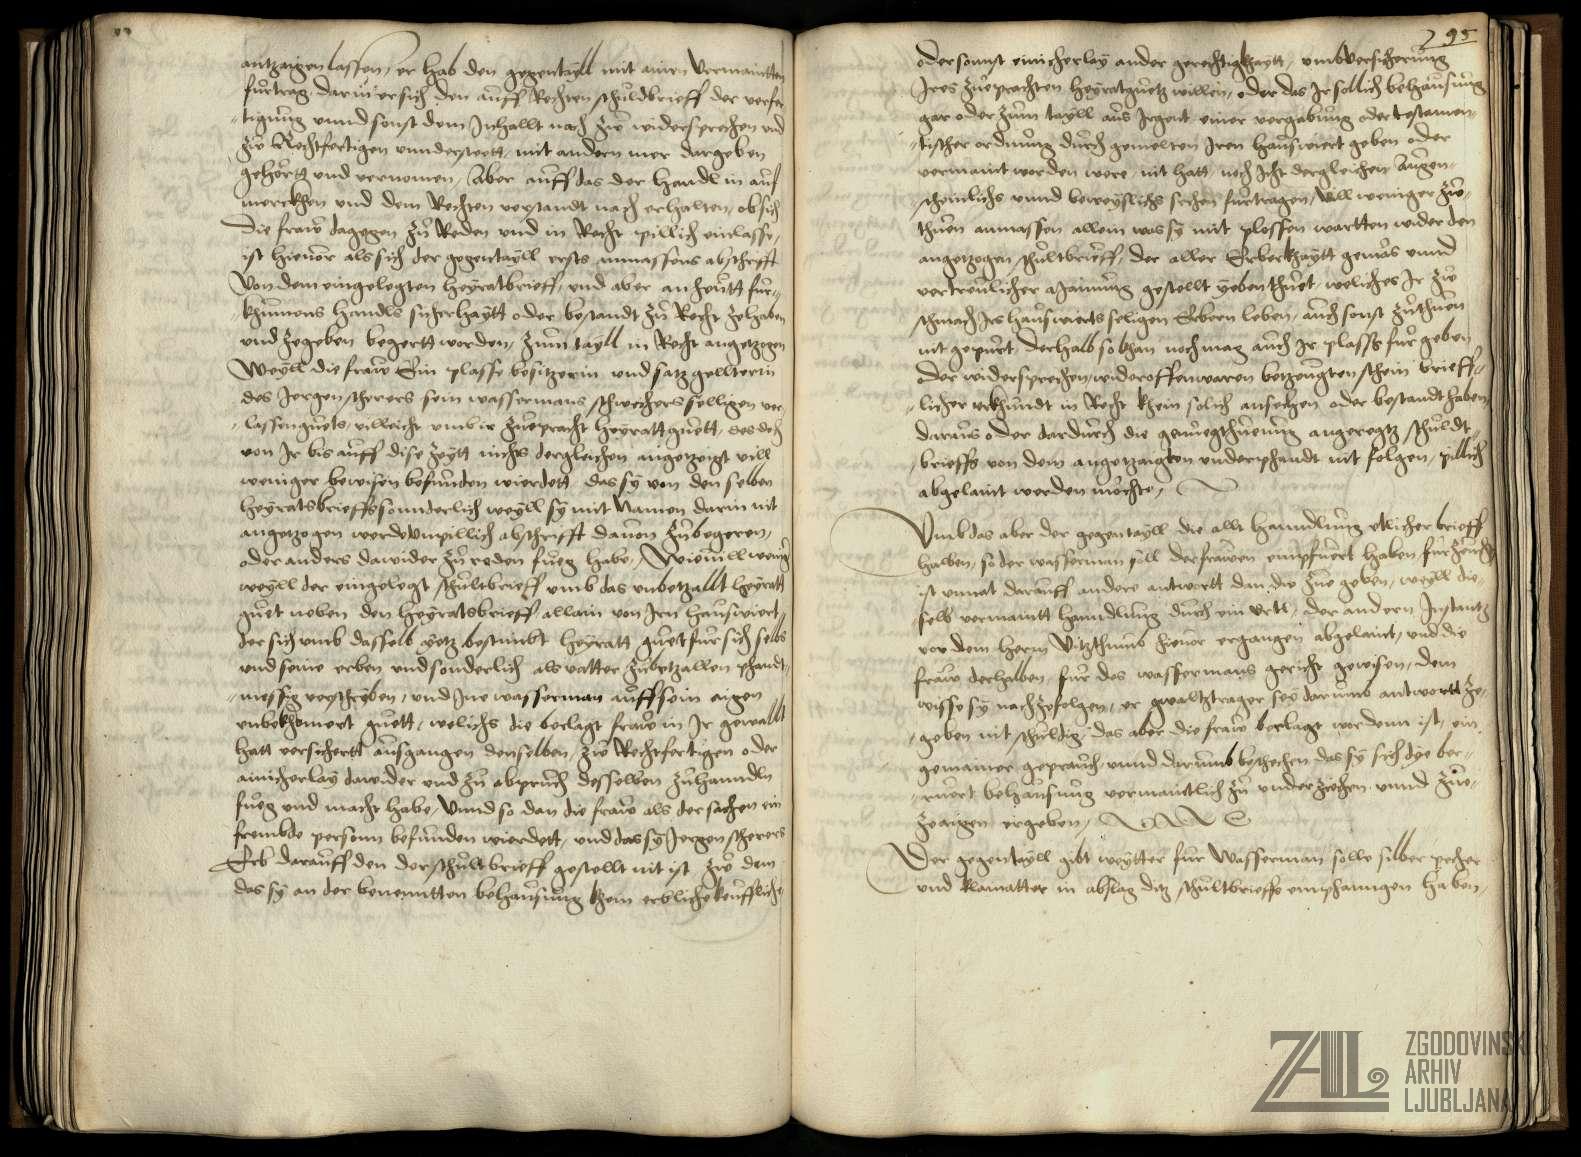 antzaigen lassen, er hab den gegentayll mit ainen vermainten
furtrag, darin er sich den auff Rechten schuldbrieff der verfer
tigung unnd sonst dem Inhallt nach zw widersprechen und
zw Rechtfertigen unndersteett, mit andern mer dargeben
gehörtt und vernomen, Aber auff das der handl in auf
merckhen und dem Rechten verstandt nach erhalten, ob sich
die fraw dagegen zu Reden und in Recht pillich einlasse,
ist hievor als sich der gegentayll erst anmassens abschrifft
von dem eingelegten heyratbrieff, und aber an heutt fur
khumens handls sicherhaytt oder bestandt zu Recht zehaben
und zegeben begertt worden, zum tayll in Recht angetzogen
Weyll die fraw Ein plosse besitzerin und satz gellterin
des Jorgen scherers sein wassermans schwechers selligen ver
lassen guets, villeicht umb ir zuepracht heyratt guett, des doch
von Ir bis auff dise zeytt nichts dergleichen angetzaigt vill
weniger bewisen befunden wierdett, das sy von den selben
heyratsbrieffs sonnderlich weyll sy mit Namen darin nit
angetzogen werde unpillich abschrifft davon zu begeren,
oder anders dawider zu reden fueg habe,
weyll der eingelegt schultbrieff umb das unbetzallt heyratt
guet neben den heyratsbrieff allain von Irn hauswiert
der sich umb dasselb yetz bestimbt heyratt guet fur sich selbs
und seine erben und sonderlich als vatter zubetzallen phandt
messig verschryben, und Ine wasserman auff sein aigen
unbekhomert guett, welichs die beclagt fraw in Ir gewallt
hatt versichertt ausgangen denselben, zw Rechtfertigen oder
ainicherlay dawider und zu abpruch desselben zuhanndln
fueg und macht habe, Unnd so dan die fraw als der sachen ein
frembde person befunden wierdett, und das sy Jorgen scherers
Erb darauff den der schultbrieff gestellt nit ist zw dem
das sy an der benennten behausung khein erbliche keufflich
295
oder sonnst einicherley ander gerechtigkhaytt, umb versicherung
Ires zuepracht heyratguetz willen, oder das Ir sollich behausung
gar oder zum tayll aus Irgent einer vergabung oder testamen
tischer ordnung durch gemelten Iren hauswiert geben oder
vermaint worden were, nit hatt, noch Icht dergleichen Augen
scheinlichs unnd beweyslichs sechen furtragen, Vill weniger zw
thuen anmassen allein was sy mit plossen wortten wider den
angetzogen schultbrieff, der aller Erberkhaytt gemäs unnd
vertreulicher mainung gestellt yeben thuet, weliches Ir zw
schmach Irs hauswierts seligen Erbern leben, auch sonst zu thuen
nit gepurt, derhalb so khan noch mag auch Ir plasse fur geben
oder widersprechen, wider offenwaren betzeugten schein brieff
licher urkhundt in Recht khein solich ansechen oder bestandt haben,
daraus oder dardurch die genuegthueung angeregtz schuldt
brieffs von dem angetzaigten underphandt nit solgen, pillich
abgelaint werden möchte,
Umb das aber der gegentayll die allt hanndlung etlicher brieff
halben, so der wasserman soll der frawen empfuert haben, fur zeucht
ist unnot darauff andere antwortt dan die zue geben, weyll die
selb vermaintt hanndlung durch ein urtl, der andern Instantz
vor dem herrn Vitzthumb hievor ergangen abgelaint, und die
fraw derhalben, fur des wassermans gericht gewisen, dem
wisse sy nach zefolgen, er gwalttrager sey darumb antwortt ze
geben nit schuldig, das aber die fraw beclagt worden ist, ein
gemainer geprauch unnd darumb beschechen das sy sich dye ber
ruert behausung vermaintlich zu underziechen unnd zue
zeaigen ergeben,
Der gegentayll gibt weytter fur Wasserman solle silber pecher
und klainatter in abslag ditz schultbrieffs emphanngen haben,
ZAL
ZGODOVINSKI
ARHIV
LJUBLJANA